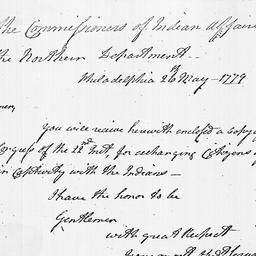 The Commissioners of Indian Affairs
the Northern Department
Philadelphia 26th May 1779
You will receive herewith enclosed a copy
of the 22nd Inst, for exchanging Citizens
in Captivity with the Indians—
I have the honor to be
Gentlemen
with great Respect
your